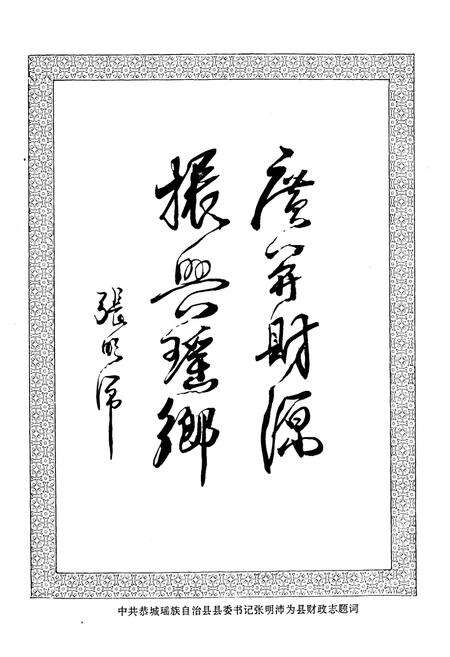 廣開財源
振興瑤鄉
張明沛
中共恭城瑶族自治县县委书记张明沛为县财政志题词